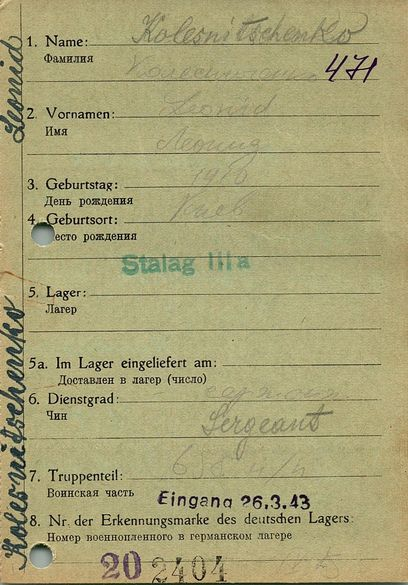 Leonid
Kolesnitschenko
1. Name: Kolesnitschenko
Фамилия
471
2. Vornamen: Leonid
Имя Леонид
3. Geburtstag: 1910
День рождения
4. Geburtsort: Киев
есто рождения
Stalag IIIa
5. Lager:
Лагерь
5a. Im Lager eingeliefert am:
Доставлен в лагерь (число)
6. Dienstgrad:
Чин
Sergeant
7. Truppenteil:
Воинская часть
Eingang 26.3.43
8. Nr. der Erkennungsmarke des deutschen Lagers:
Номер военнопленного в германском лагере
20 2404